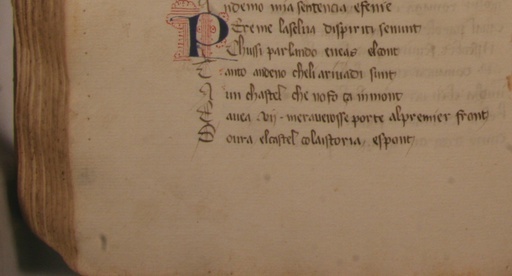 Andemo mia sentencia efenire
Per eme laselua dispiriti senunt
Chussi parlando eneas elont
Tanto andeno cheli ariuadi sunt
A un chastel che nofo ça inmont
Et auea .vij. meraueiosse porte alpremier front
Dotra elcastel colaistoria espont